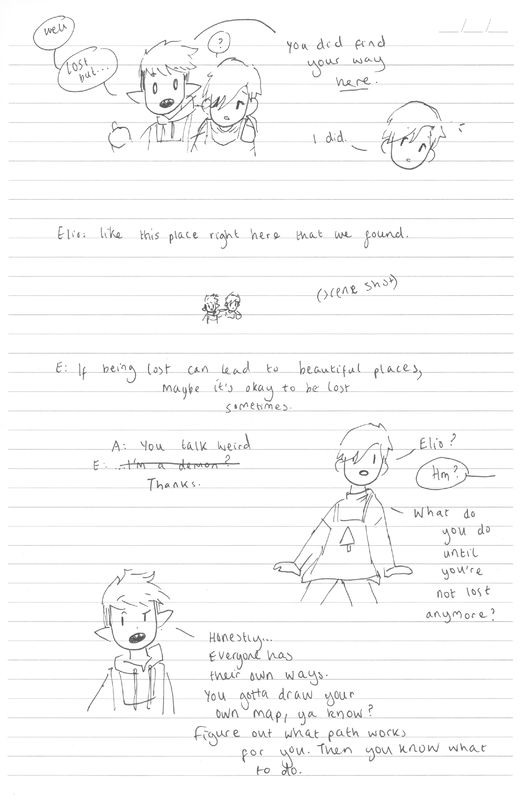 well
lost
but...
?
You did find
your way
here.
I did.
Elio: like this place right here that we found.
(scene shot)
E: If being lost can lead to beautiful places,
maybe it's okay to be lost
sometimes.
A: You talk weird
E: ...I'm a demon?
Thanks.
Elio?
Hm?
What do
you do
until
you're
not lost
anymore?
Honestly...
Everyone has
their own ways.
You gotta draw your
own map, ya know?
Figure out what path works
for you. Then you know what
to do.